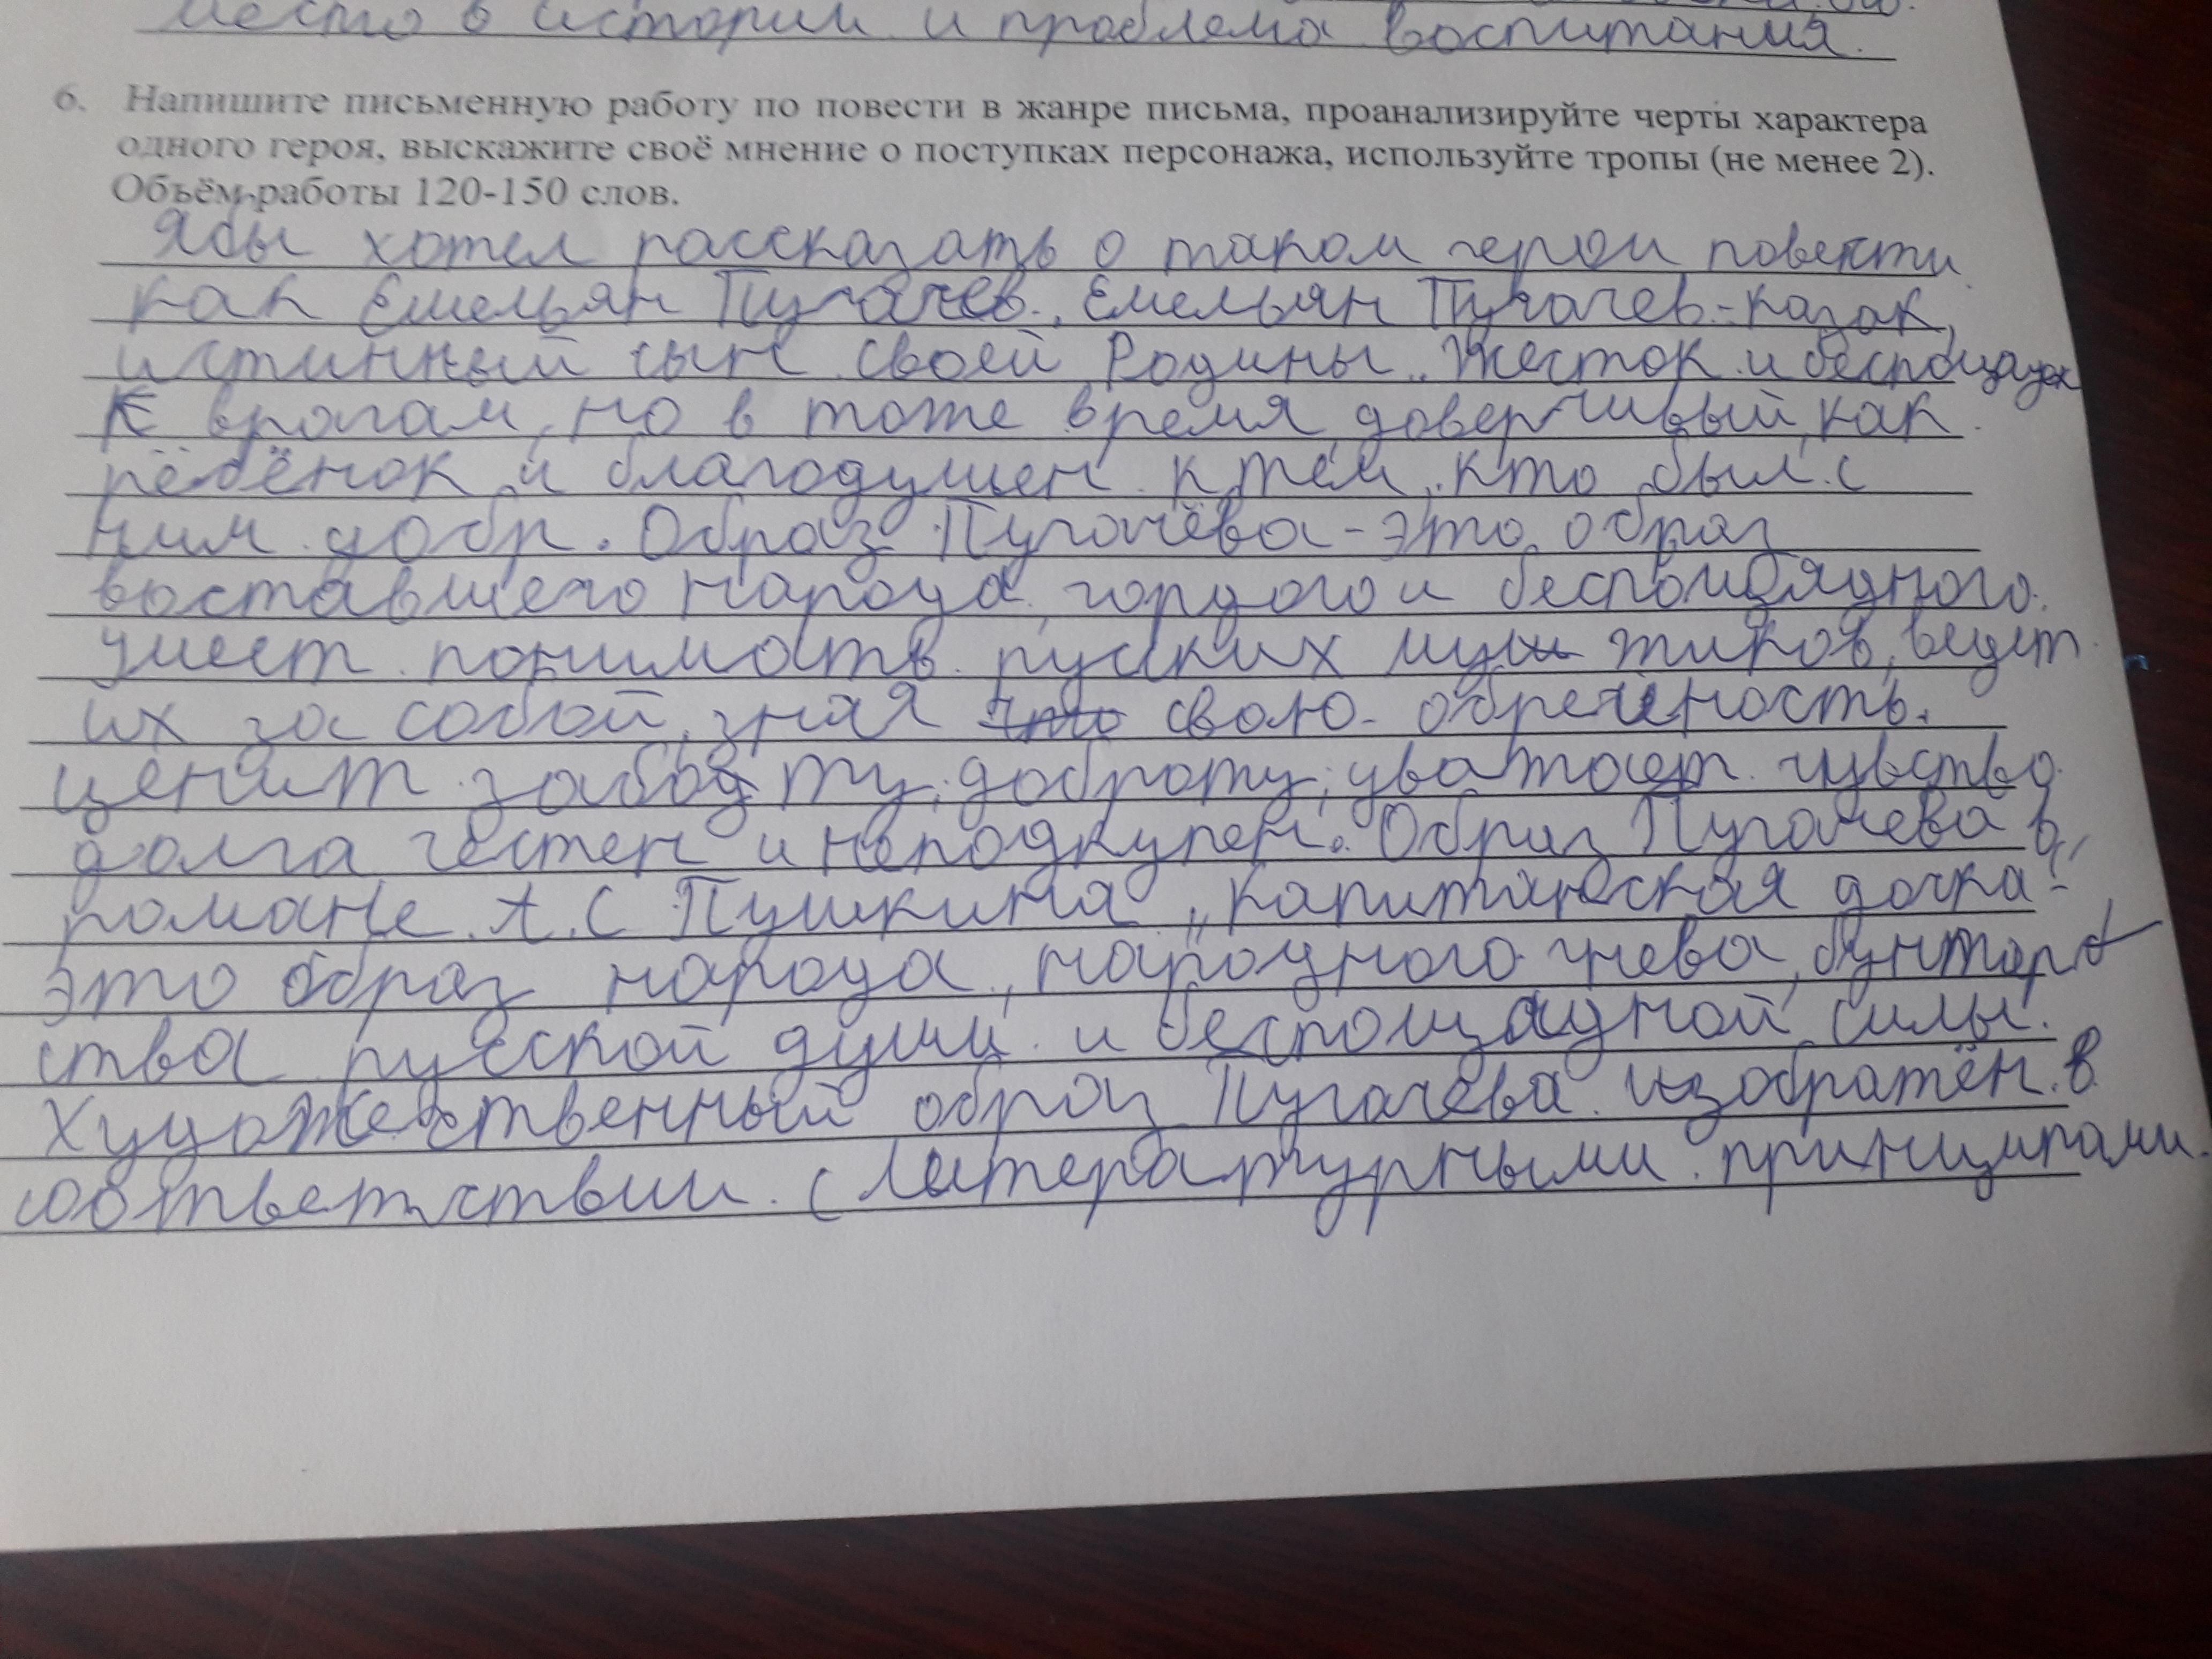 место в истории и проблема воспитания.
6. Напишите письменную работу по повести в жанре письма, проанализируйте черты характера
одного героя, выскажите своё мнение о поступках персонажа, используйте тропы (не менее 2).
Объём работы 120-150 слов.
Я бы хотел рассказать о таком герои повести
как Емельян Пугачев. Емельян Пугачев-казак,
истинный сын своей Родины. Жесток и беспощаден
к врагам, но в тоже время доверчивый, как
рёбёнок и благодушен к тем, кто был с
ним добр. Образ Пугачёва-это образ
воставшего народа, гордого и беспощядного.
Умеет понимать русских мужиков, ведет
их за собой, зная что свою обречёность.
ценит заботу, доброту, уважает чувство
долга, честен и неподкупен. Образ Пугачева в
романе А.С Пушкина „Капитанская дочка-
это образ народа, народного гнева, бунтар
ства русской души и беспощадной силы.
Художественный образ Пугачева изображён в
соответствии с литературными принципами.